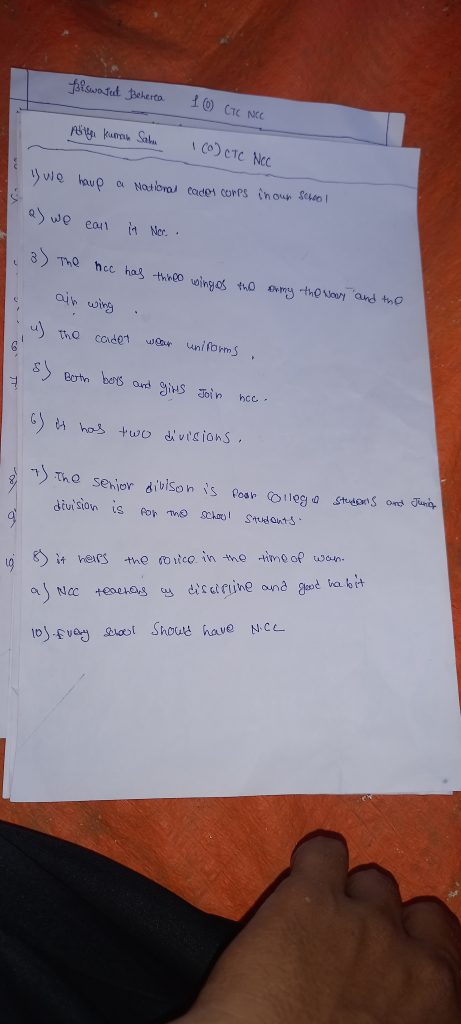 Biswajeet Beherea 1 (O) CTC NCC
Aditya Kumar Sahu 1 (O) CTC NCC
1) We have a National cadet corps in our school
2) we call it Ncc.
3) The ncc has three winges the army the Navy and the
air wing.
4) The cadet wear uniforms.
5) Both boys and girls Join ncc.
6) it has two divisions.
7) The senior divison is for college students and Junior
division is for the school students.
8) it helps the police in the time of war.
9) NCC teachers us discipline and good habit
10) Every school should have N.CC